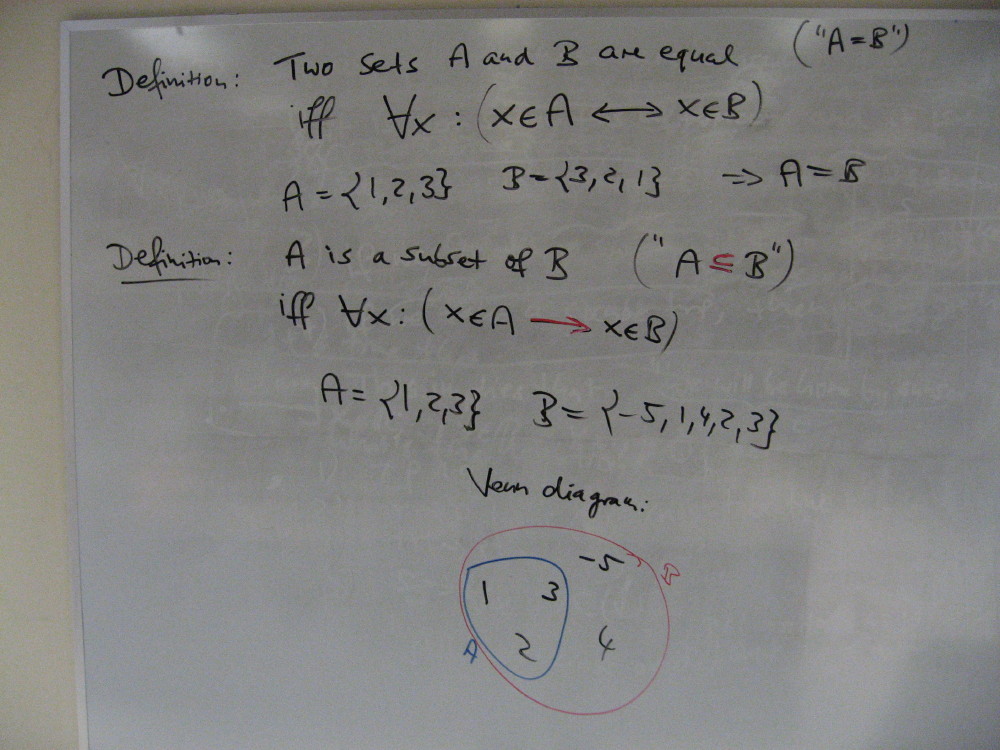 Definition: Two sets A and B are equal ("A = B")
iff ∀x : (x∈A ⟷ x∈B)
A = {1,2,3} B = {3,2,1} ⇒ A = B
Definition: A is a subset of B ("A ⊆ B")
iff ∀x : (x∈A ⟶ x∈B)
A = {1,2,3} B = {-5,1,4,2,3}
Venn diagram:
-5 B
1 3
A 2 4